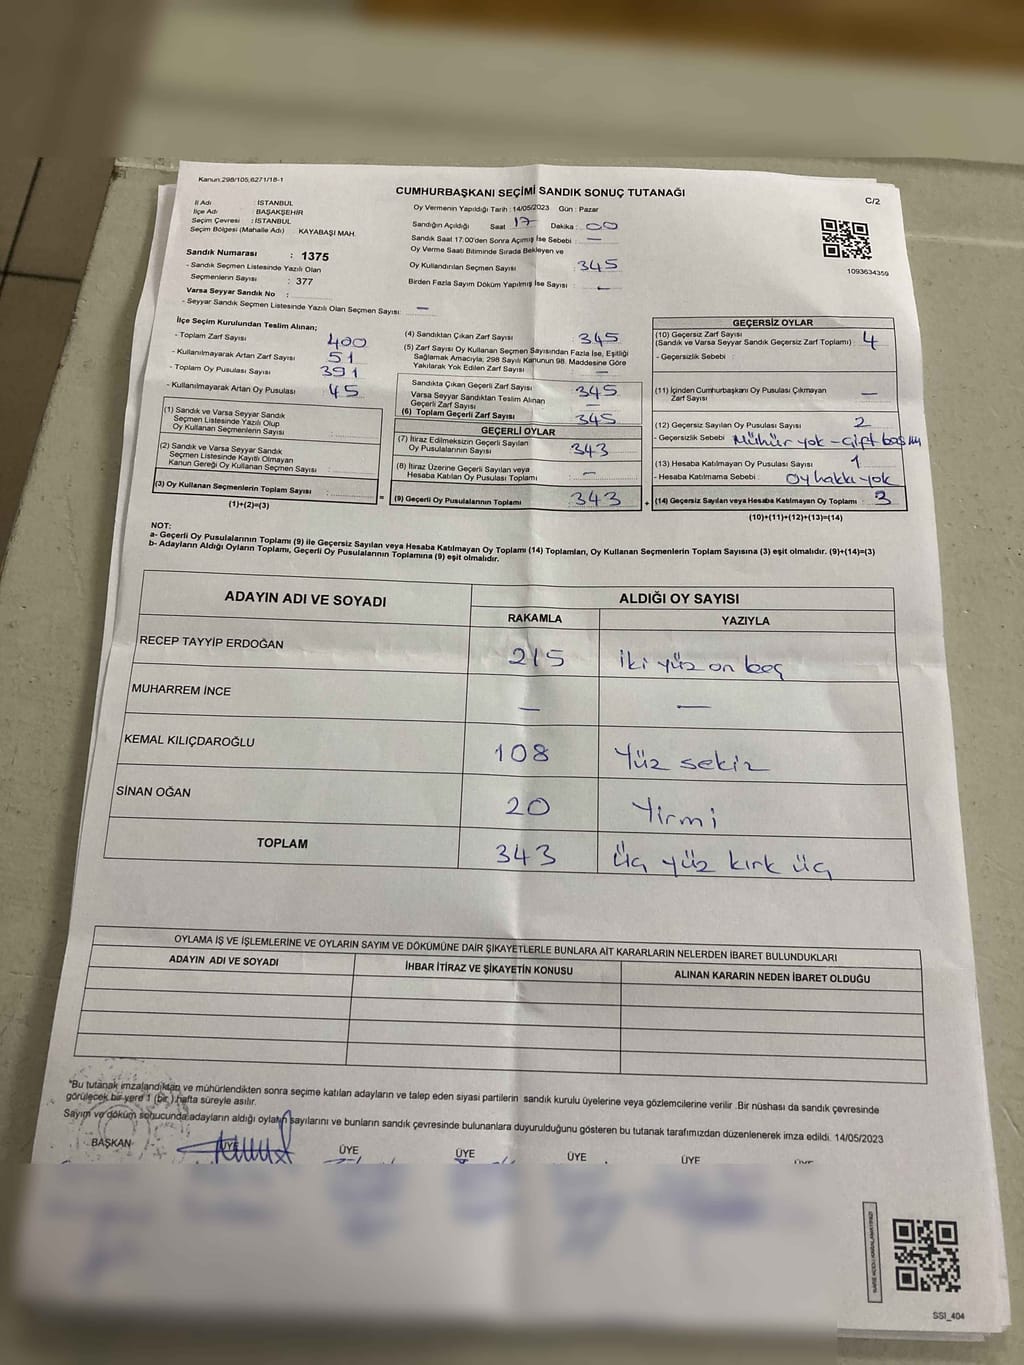 Kanun:298/105,6271/18-1
CUMHURBAŞKANI SEÇİMİ SANDIK SONUÇ TUTANAĞI
C/2
İl Adı : İSTANBUL
İlçe Adı : BAŞAKŞEHİR
Seçim Çevresi : İSTANBUL
Seçim Bölgesi (Mahalle Adı) KAYABAŞI MAH.
Oy Vermenin Yapıldığı Tarih : 14/05/2023 Gün : Pazar
Sandığın Açıldığı Saat 17 Dakika : 00
Sandık Saat 17:00'den Sonra Açımış İse Sebebi : —
Oy Verme Saati Bitiminde Sırada Bekleyen ve
Oy Kullandırılan Seçmen Sayısı : 345
Birden Fazla Sayım Döküm Yapılmış İse Sayısı : —
1093634359
Sandık Numarası : 1375
- Sandık Seçmen Listesinde Yazılı Olan
Seçmenlerin Sayısı : 377
Varsa Seyyar Sandık No :
- Seyyar Sandık Seçmen Listesinde Yazılı Olan Seçmen Sayısı: —
İlçe Seçim Kurulundan Teslim Alınan;
- Toplam Zarf Sayısı 400
- Kullanılmayarak Artan Zarf Sayısı 51
- Toplam Oy Pusulası Sayısı 391
- Kullanılmayarak Artan Oy Pusulası 45
(1) Sandık ve Varsa Seyyar Sandık
Seçmen Listesinde Yazılı Olup
Oy Kullanan Seçmenlerin Sayısı :
(2) Sandık ve Varsa Seyyar Sandık
Seçmen Listesinde Kayıtlı Olmayan
Kanun Gereği Oy Kullanan Seçmen Sayısı :
(3) Oy Kullanan Seçmenlerin Toplam Sayısı :
(1)+(2)=(3)
(4) Sandıktan Çıkan Zarf Sayısı 345
(5) Zarf Sayısı Oy Kullanan Seçmen Sayısından Fazla İse, Eşitliği
Sağlamak Amacıyla; 298 Sayılı Kanunun 98. Maddesine Göre
Yakılarak Yok Edilen Zarf Sayısı : —
Sandıkta Çıkan Geçerli Zarf Sayısı 345
Varsa Seyyar Sandıktan Teslim Alınan
Geçerli Zarf Sayısı —
(6) Toplam Geçerli Zarf Sayısı 345
GEÇERLİ OYLAR
(7) İtiraz Edilmeksizin Geçerli Sayılan
Oy Pusulalarının Sayısı 343
(8) İtiraz Üzerine Geçerli Sayılan veya
Hesaba Katılan Oy Pusulası Toplamı : —
= (9) Geçerli Oy Pusulalarının Toplamı 343 +
GEÇERSİZ OYLAR
(10) Geçersiz Zarf Sayısı
(Sandık ve Varsa Seyyar Sandık Geçersiz Zarf Toplamı) : 4
- Geçersizlik Sebebi :
(11) İçinden Cumhurbaşkanı Oy Pusulası Çıkmayan
Zarf Sayısı —
(12) Geçersiz Sayılan Oy Pusulası Sayısı 2
- Geçersizlik Sebebi Mühür yok - çift
(13) Hesaba Katılmayan Oy Pusulası Sayısı 1
- Hesaba Katılmama Sebebi : Oy hakkı yok
(14) Geçersiz Sayılan veya Hesaba Katılmayan Oy Toplamı : 3
(10)+(11)+(12)+(13)=(14)
NOT:
a- Geçerli Oy Pusulalarının Toplamı (9) ile Geçersiz Sayılan veya Hesaba Katılmayan Oy Toplamı (14) Toplamları, Oy Kullanan Seçmenlerin Toplam Sayısına (3) eşit olmalıdır. (9)+(14)=(3)
b- Adayların Aldığı Oyların Toplamı, Geçerli Oy Pusulalarının Toplamına (9) eşit olmalıdır.
ADAYIN ADI VE SOYADI ALDIĞI OY SAYISI
RAKAMLA YAZIYLA
RECEP TAYYİP ERDOĞAN 215 iki yüz on beş
MUHARREM İNCE — —
KEMAL KILIÇDAROĞLU 108 Yüz sekiz
SİNAN OĞAN 20 Yirmi
TOPLAM 343 Üç yüz kırk üç
OYLAMA İŞ VE İŞLEMLERİNE VE OYLARIN SAYIM VE DÖKÜMÜNE DAİR ŞİKAYETLERLE BUNLARA AİT KARARLARIN NELERDEN İBARET BULUNDUKLARI
ADAYIN ADI VE SOYADI İHBAR İTİRAZ VE ŞİKAYETİN KONUSU ALINAN KARARIN NEDEN İBARET OLDUĞU
*Bu tutanak imzalandıktan ve mühürlendikten sonra seçime katılan adayların ve talep eden siyasi partilerin sandık kurulu üyelerine veya gözlemcilerine verilir .Bir nüshası da sandık çevresinde
görülecek bir yere 1 (bir ) hafta süreyle asılır.
Sayım ve döküm sonucunda adayların aldığı oyların sayılarını ve bunların sandık çevresinde bulunanlara duyurulduğunu gösteren bu tutanak tarafımızdan düzenlenerek imza edildi. 14/05/2023
BAŞKAN ÜYE ÜYE ÜYE ÜYE ÜYE ÜYE
SSI_404